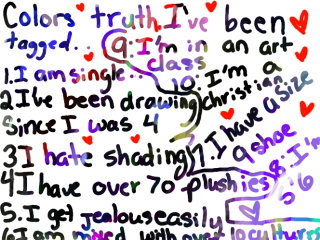 Colors truth I've been
tagged..
9. I'm in an art
class
1. I am single..
10. I'm a
christian
2 I've been drawing
since I was 4
3 I hate shading
7. I have a size
9 shoe
4 I have over 70 plushies
8. I'm
5"6
5. I get jealous easily
6 I am mixed with over 10 cultures